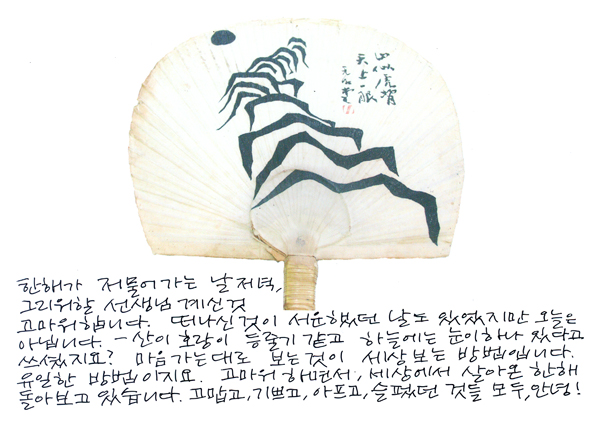 山似虎
天上一眼
한해가 저물어가는 날 저녁,
그리워할 선생님 계신것
고마워합니다. 떠나신것이 서운했던 날도 있었지만 오늘은
아닙니다. -산이 호랑이 등줄기 같고 하늘에는 눈이하나 있다고
쓰셨지요? 마음가는대로 보는것이 세상 보는 방법입니다.
유일한 방법이지요. 고마워 하면서, 세상에서 살아온 한해
돌아보고 있습니다. 고맙고, 기쁘고, 아프고, 슬펐던 것들 모두, 안녕!